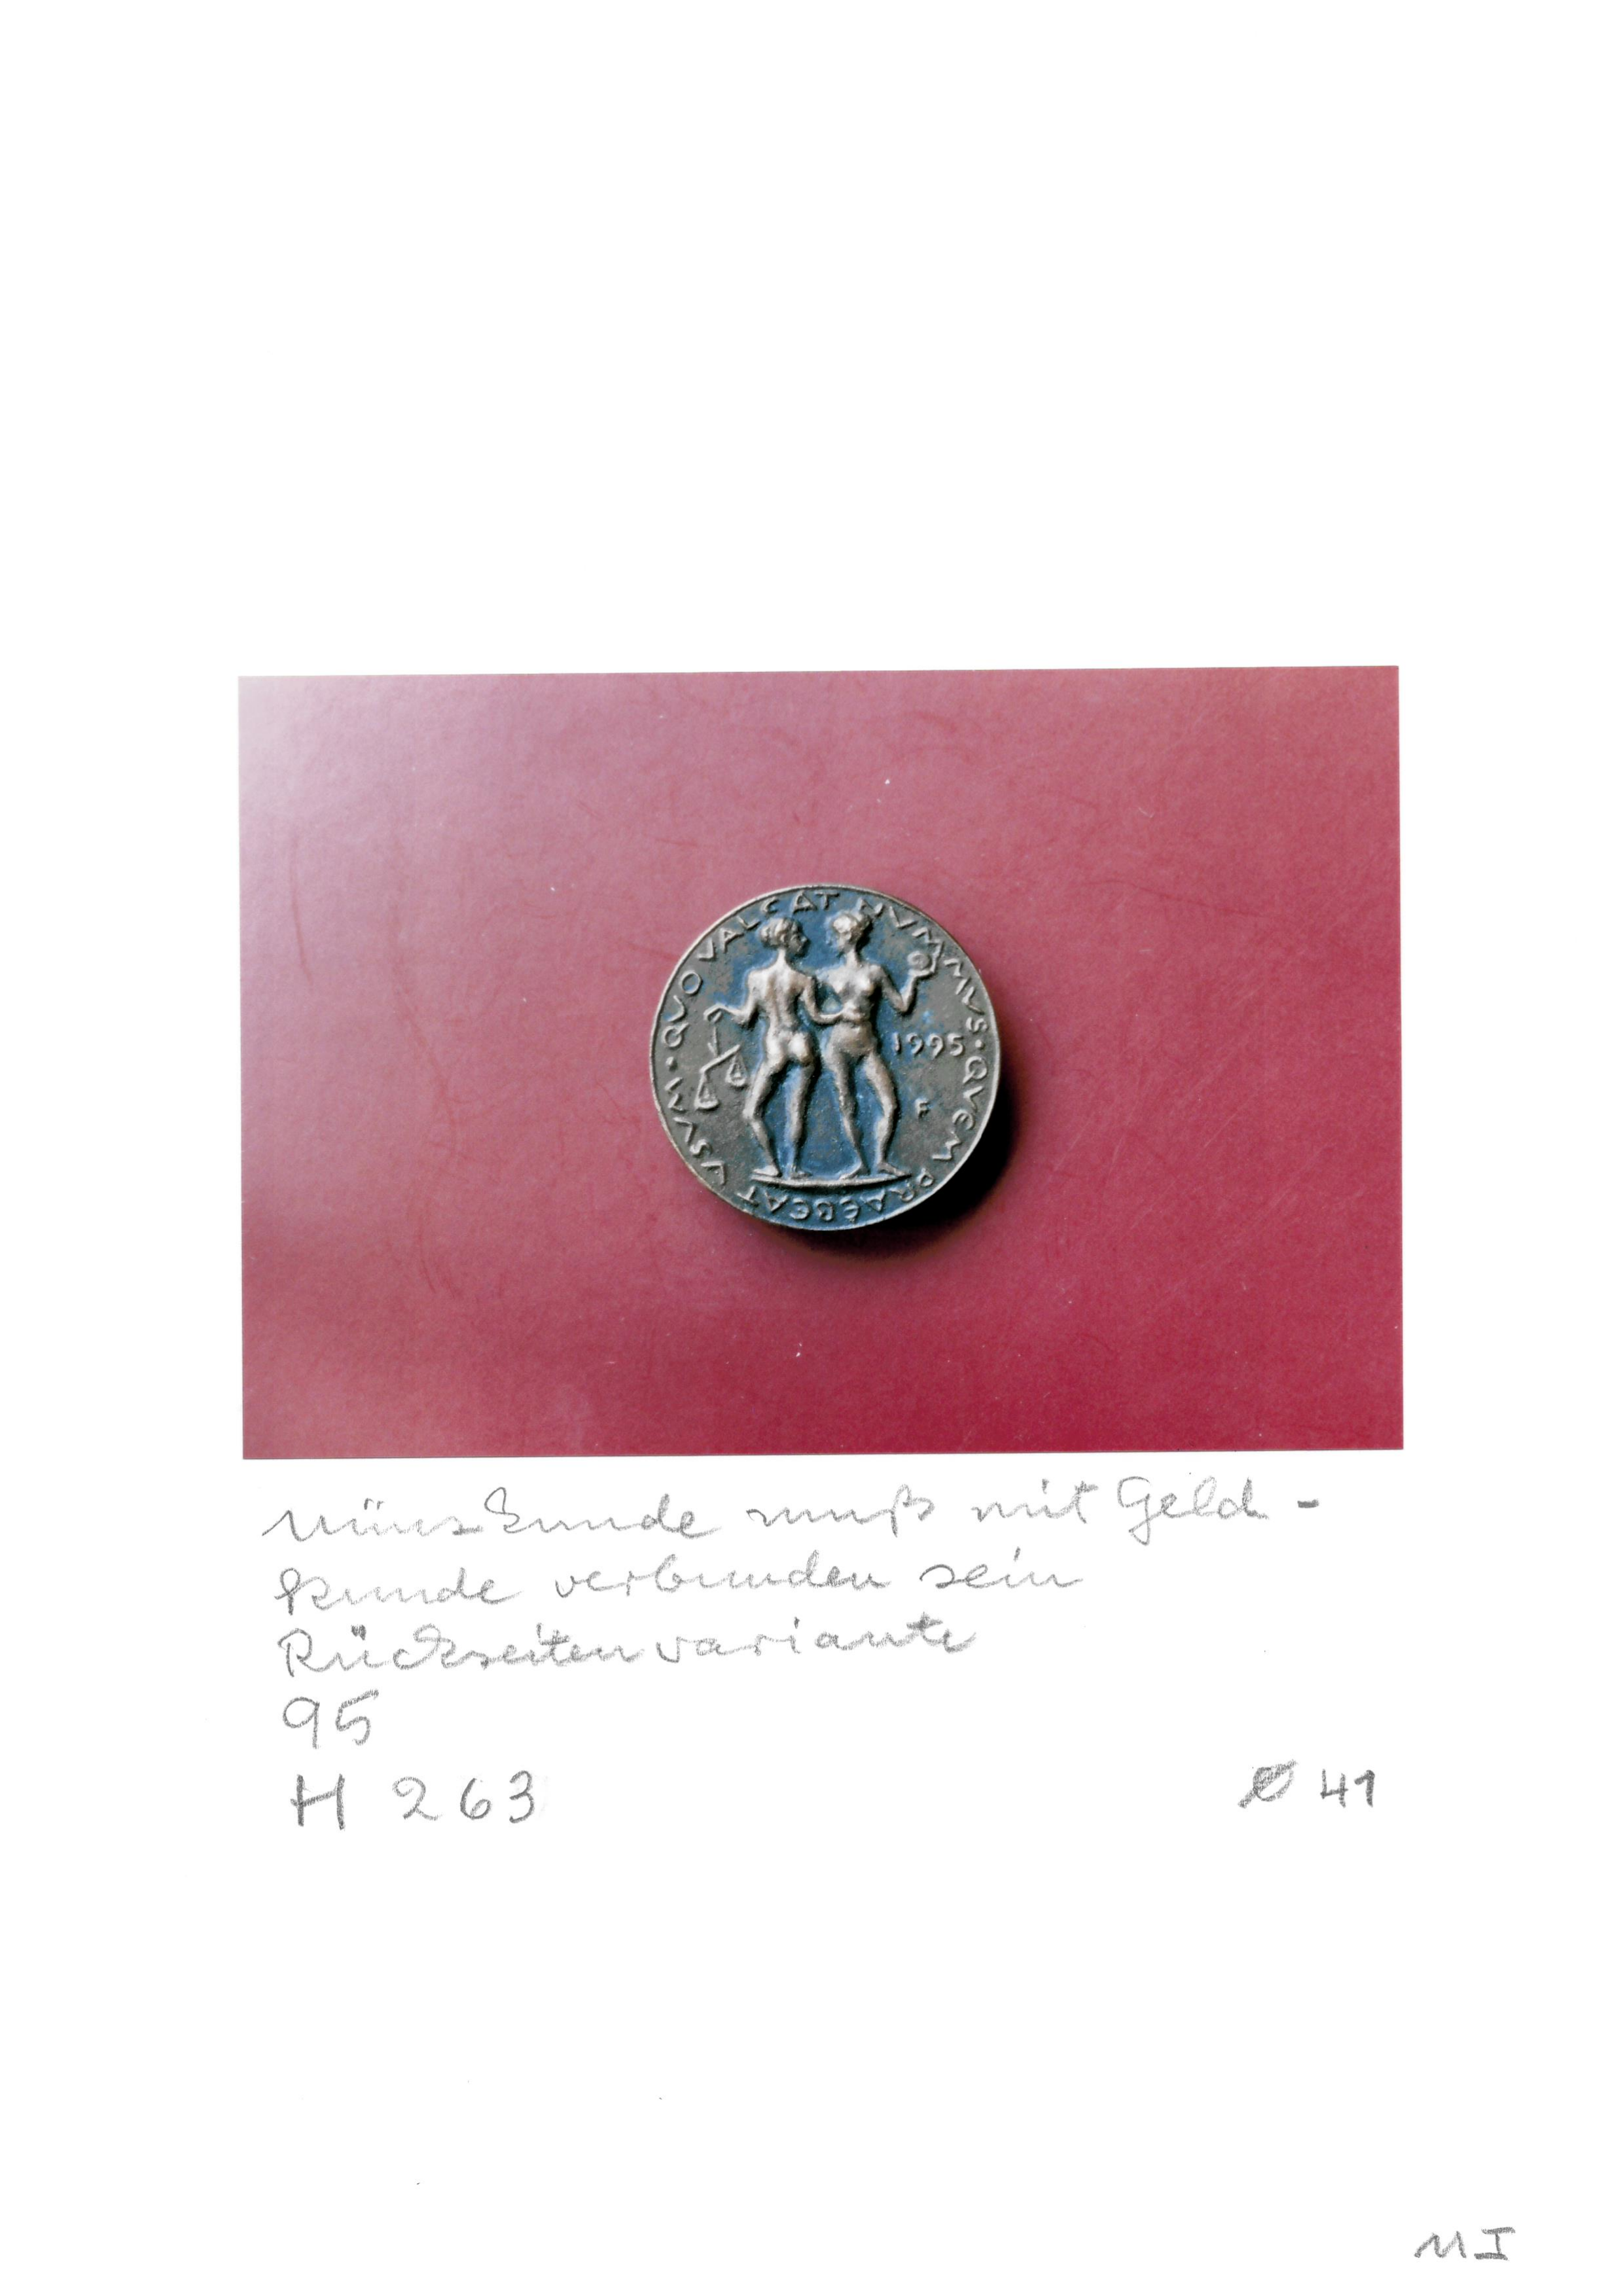 QUO VALEAT NVMMVS · QVEM PRAEBEAT VSVM ·
1995
F
Münzkunde muß mit Geld-
kunde verbunden sein
Rückseitenvariante
95
H 263
Ø 41
M I